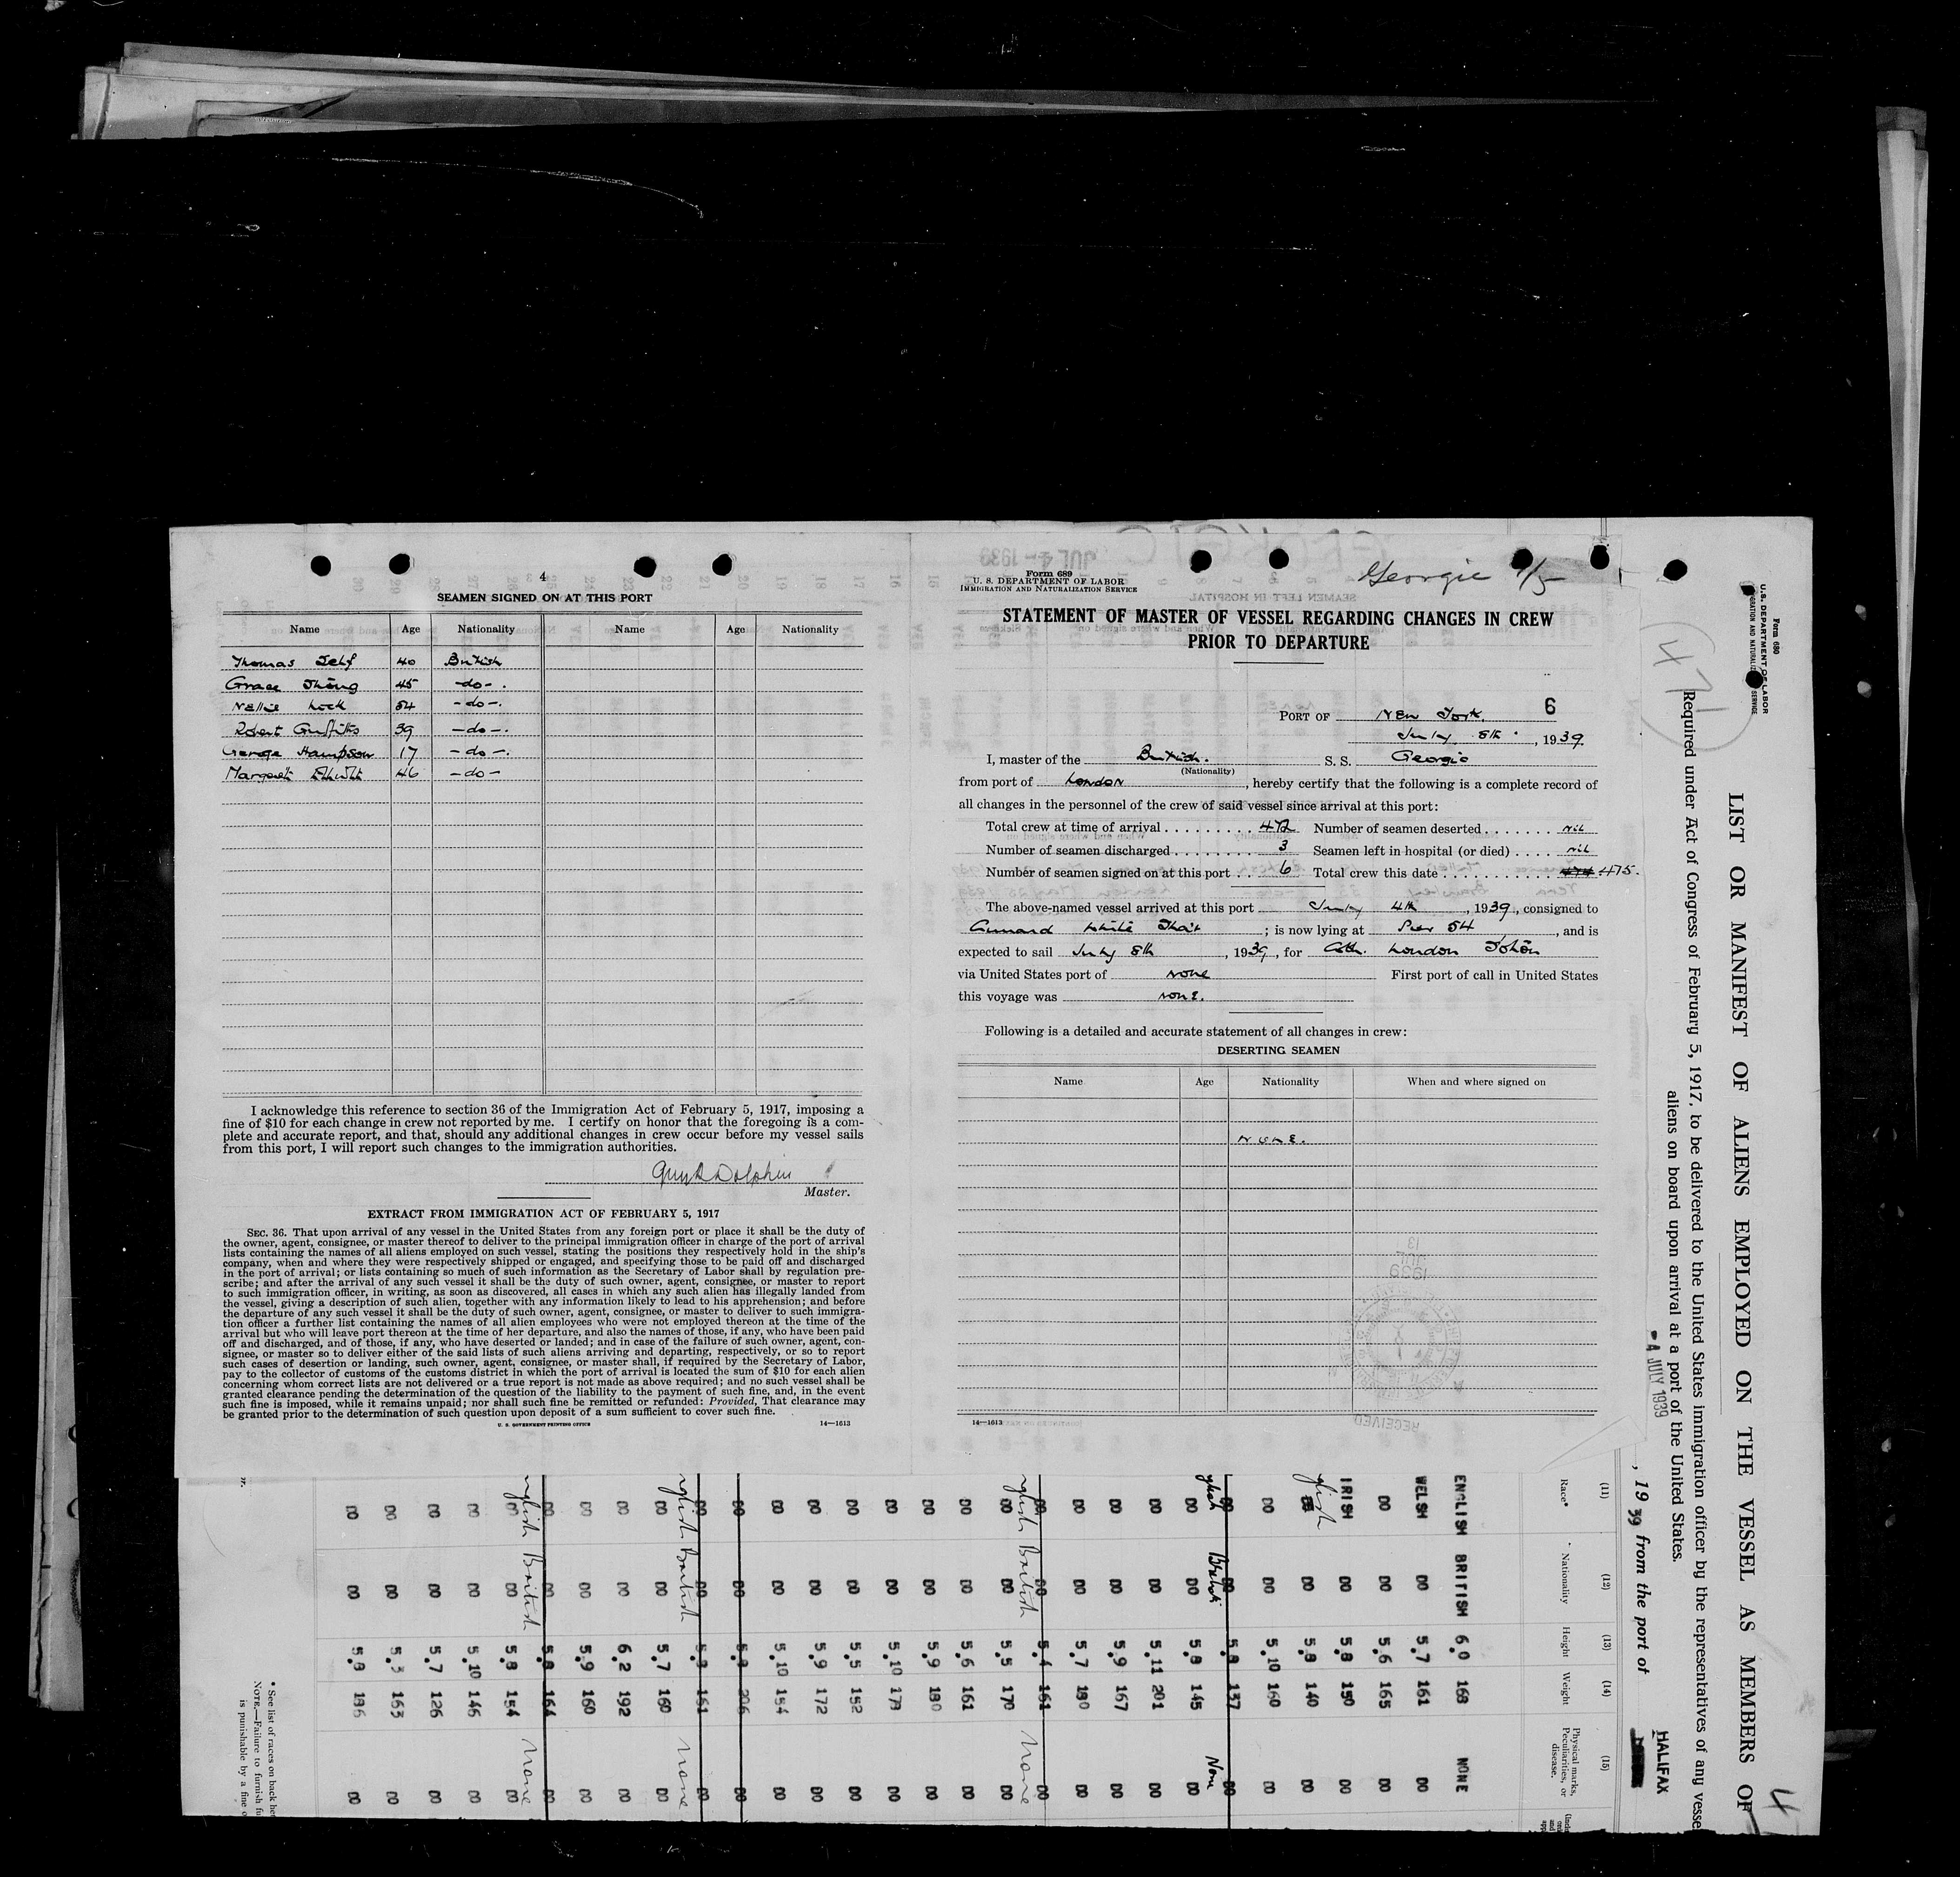 4
SEAMEN SIGNED ON AT THIS PORT
Name Age Nationality Name Age Nationality
Thomas 40 British
Grace 45 -do-.
Nellie Lock 54 -do-.
Robert Griffiths 39 -do-.
George Hampson 17 -do-.
Margaret 46 -do-
I acknowledge this reference to section 36 of the Immigration Act of February 5, 1917, imposing a
fine of $10 for each change in crew not reported by me. I certify on honor that the foregoing is a com-
plete and accurate report, and that, should any additional changes in crew occur before my vessel sails
from this port, I will report such changes to the immigration authorities.
Dolphin
Master.
EXTRACT FROM IMMIGRATION ACT OF FEBRUARY 5, 1917
SEC. 36. That upon arrival of any vessel in the United States from any foreign port or place it shall be the duty of
the owner, agent, consignee, or master thereof to deliver to the principal immigration officer in charge of the port of arrival
lists containing the names of all aliens employed on such vessel, stating the positions they respectively hold in the ship's
company, when and where they were respectively shipped or engaged, and specifying those to be paid off and discharged
in the port of arrival; or lists containing so much of such information as the Secretary of Labor shall by regulation pre-
scribe; and after the arrival of any such vessel it shall be the duty of such owner, agent, consignee, or master to report
to such immigration officer, in writing, as soon as discovered, all cases in which any such alien has illegally landed from
the vessel, giving a description of such alien, together with any information likely to lead to his apprehension; and before
the departure of any such vessel it shall be the duty of such owner, agent, consignee, or master to deliver to such immigra-
tion officer a further list containing the names of all alien employees who were not employed thereon at the time of the
arrival but who will leave port thereon at the time of her departure, and also the names of those, if any, who have been paid
off and discharged, and of those, if any, who have deserted or landed; and in case of the failure of such owner, agent, con-
signee, or master so to deliver either of the said lists of such aliens arriving and departing, respectively, or so to report
such cases of desertion or landing, such owner, agent, consignee, or master shall, if required by the Secretary of Labor,
pay to the collector of customs of the customs district in which the port of arrival is located the sum of $10 for each alien
concerning whom correct lists are not delivered or a true report is not made as above required; and no such vessel shall be
granted clearance pending the determination of the question of the liability to the payment of such fine, and, in the event
such fine is imposed, while it remains unpaid; nor shall such fine be remitted or refunded: Provided, That clearance may
be granted prior to the determination of such question upon deposit of a sum sufficient to cover such fine.
U. S. GOVERNMENT PRINTING OFFICE 14—1613
Form 689
U. S. DEPARTMENT OF LABOR
IMMIGRATION AND NATURALIZATION SERVICE
Georgic 7/5
STATEMENT OF MASTER OF VESSEL REGARDING CHANGES IN CREW
PRIOR TO DEPARTURE
6
PORT OF New York.
July 8th, 1939
I, master of the British. S. S. Georgic
(Nationality)
from port of London, hereby certify that the following is a complete record of
all changes in the personnel of the crew of said vessel since arrival at this port:
Total crew at time of arrival 472 Number of seamen deserted Nil
Number of seamen discharged 3 Seamen left in hospital (or died) Nil
Number of seamen signed on at this port 6 Total crew this date 474 475.
The above-named vessel arrived at this port July 4th, 1939, consigned to
Cunard White Star; is now lying at Pier 54, and is
expected to sail July 8th, 1939, for London
via United States port of None First port of call in United States
this voyage was None.
Following is a detailed and accurate statement of all changes in crew:
DESERTING SEAMEN
Name Age Nationality When and where signed on
None.
14—1613
Form 680
U. S. DEPARTMENT OF LABOR
IMMIGRATION AND NATURALIZATION SERVICE
47
LIST OR MANIFEST OF ALIENS EMPLOYED ON THE VESSEL AS MEMBERS OF
4
Required under Act of Congress of February 5, 1917, to be delivered to the United States immigration officer by the representatives of any vesse
aliens on board upon arrival at a port of the United States.
-4 JULY 1939
, 19 39 from the port of HALIFAX
(11) (12) (13) (14) (15)
Race* Nationality Height Weight Physical marks, Peculiarities, or disease.
ENGLISH BRITISH 6.0 168 NONE
WELSH DO 5.7 161 DO
DO DO 5.6 165 DO
IRISH DO 5.8 150 DO
glish DO 5.8 140 DO
DO DO 5.10 160 DO
DO DO 5.8 137 DO
glish British
DO DO 5.8 145 DO Non
DO DO 5.11 201 DO
DO DO 5.9 167 DO
DO DO 5.7 180 DO
DO DO 5.4 161 DO
nglish British 5.5 170 None
DO DO 5.6 161 DO
DO DO 5.9 180 DO
DO DO 5.10 179 DO
DO DO 5.5 152 DO
DO DO 5.9 172 DO
DO DO 5.10 154 DO
DO DO 5.8 206 DO
DO DO 5.8 161 DO
nglish British None
DO DO 5.7 160 DO
DO DO 6.2 192 DO
DO DO 5.9 160 DO
DO DO 5.8 164 DO
nglish British None
DO DO 5.8 154
DO DO 5.10 146 DO
DO DO 5.7 126 DO
DO DO 5.5 163 DO
DO DO 5.8 186 DO
* See list of races on back her
NOTE.—Failure to furnish fu
is punishable by a fine o